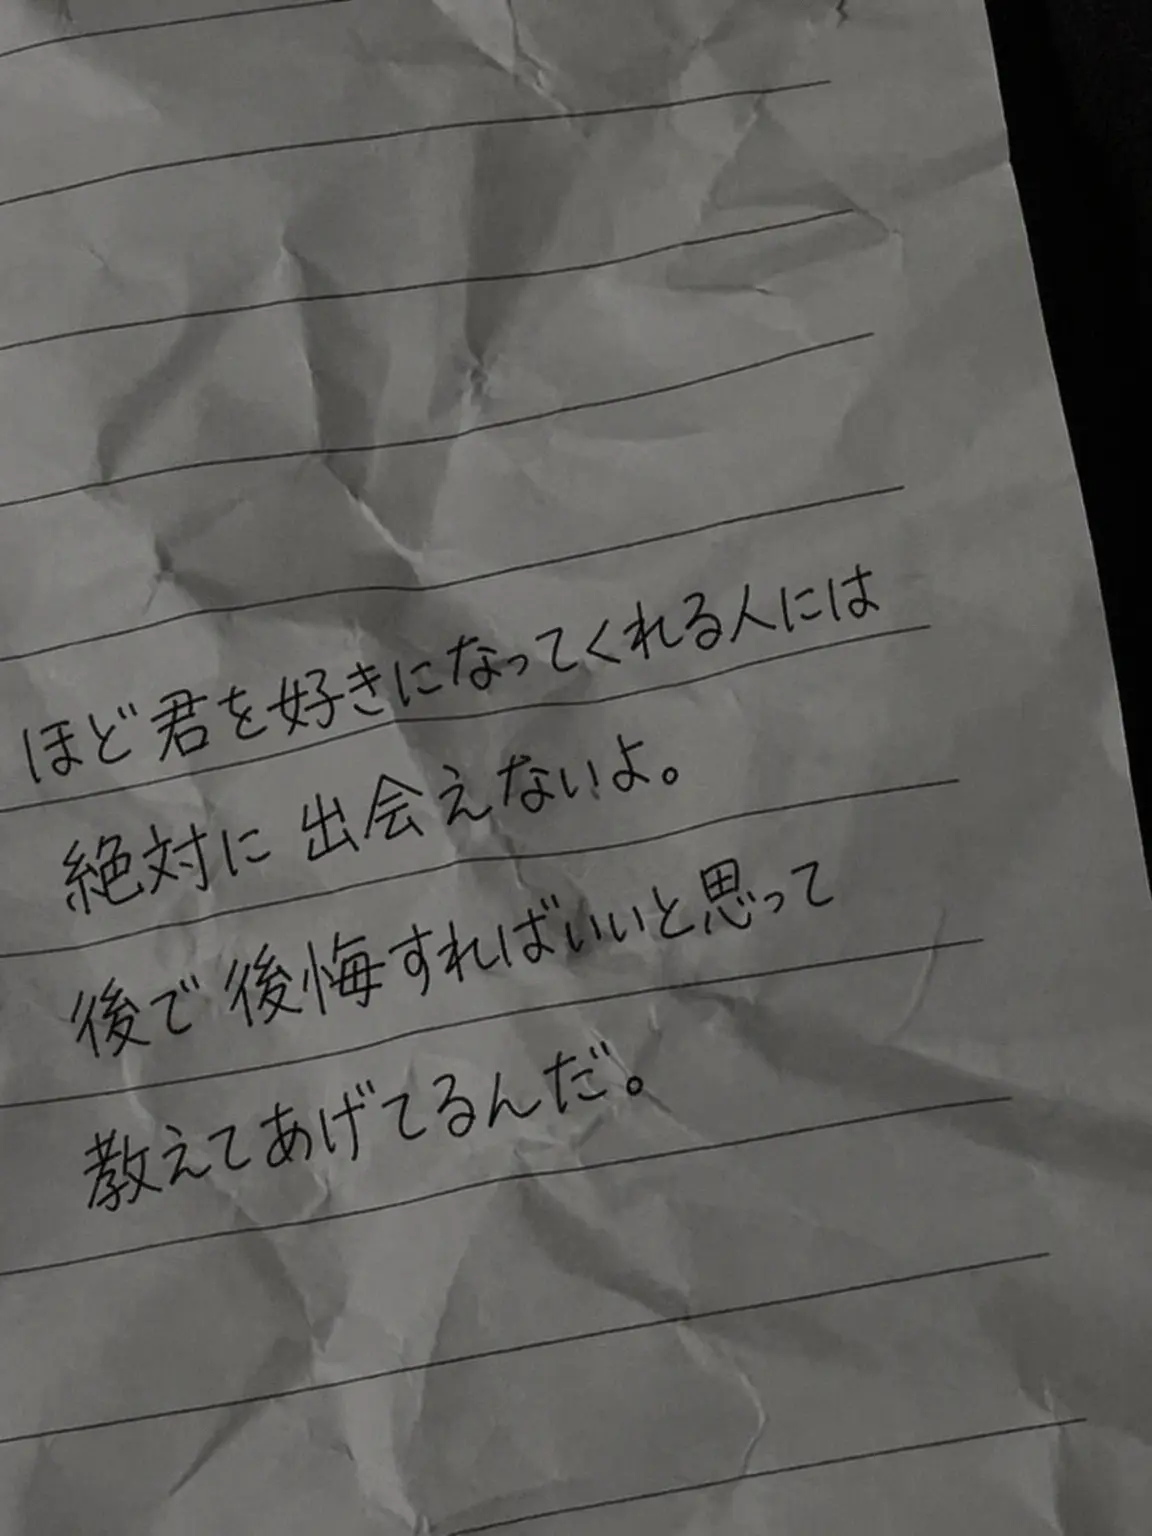 ほど君を好きになってくれる人には
絶対に出会えないよ。
後で後悔すればいいと思って
教えてあげてるんだ。